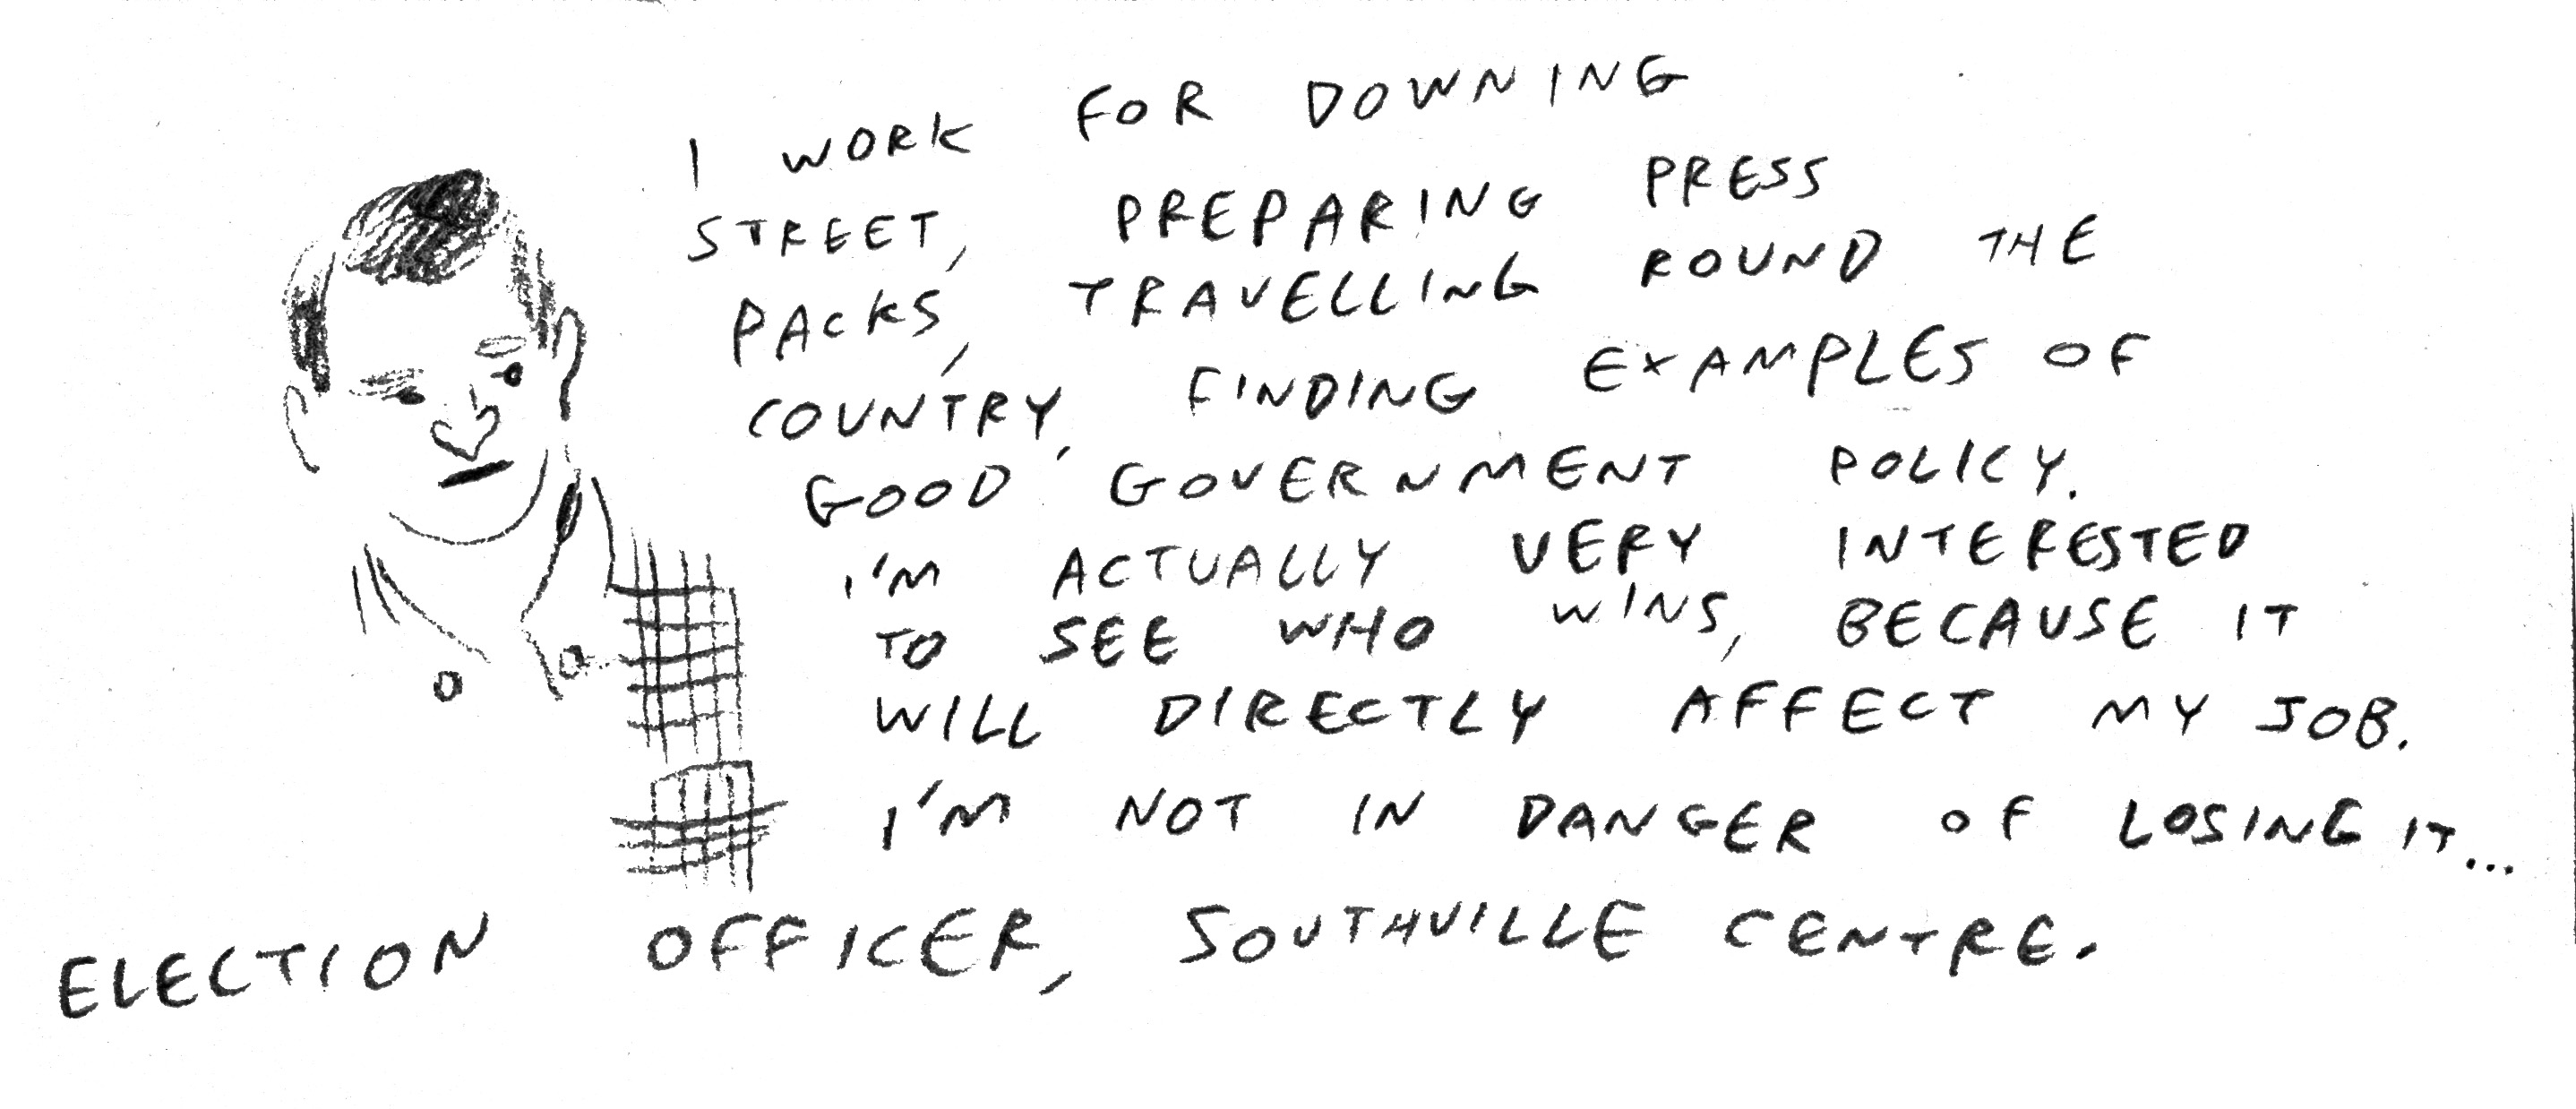 I WORK FOR DOWNING
STREET, PREPARING PRESS
PACKS, TRAVELLING ROUND THE
COUNTRY, FINDING EXAMPLES OF
GOOD GOVERNMENT POLICY.
I'M ACTUALLY VERY INTERESTED
TO SEE WHO WINS, BECAUSE IT
WILL DIRECTLY AFFECT MY JOB.
I'M NOT IN DANGER OF LOSING IT...
ELECTION OFFICER, SOUTHVILLE CENTRE.